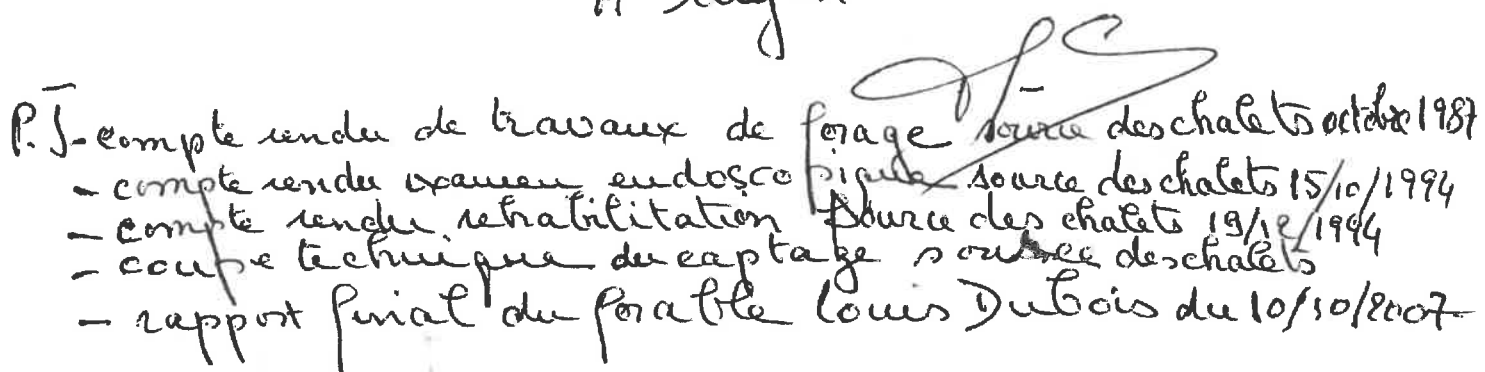 P.J - compte rendu de travaux de forage source des chalets octobre 1987
- compte rendu examen endoscopique source des chalets 15/10/1994
- compte rendu rehabilitation source des chalets 19/12/1994
- coupe technique du captage source des chalets
- rapport final du forable Louis Dubois du 10/10/2007